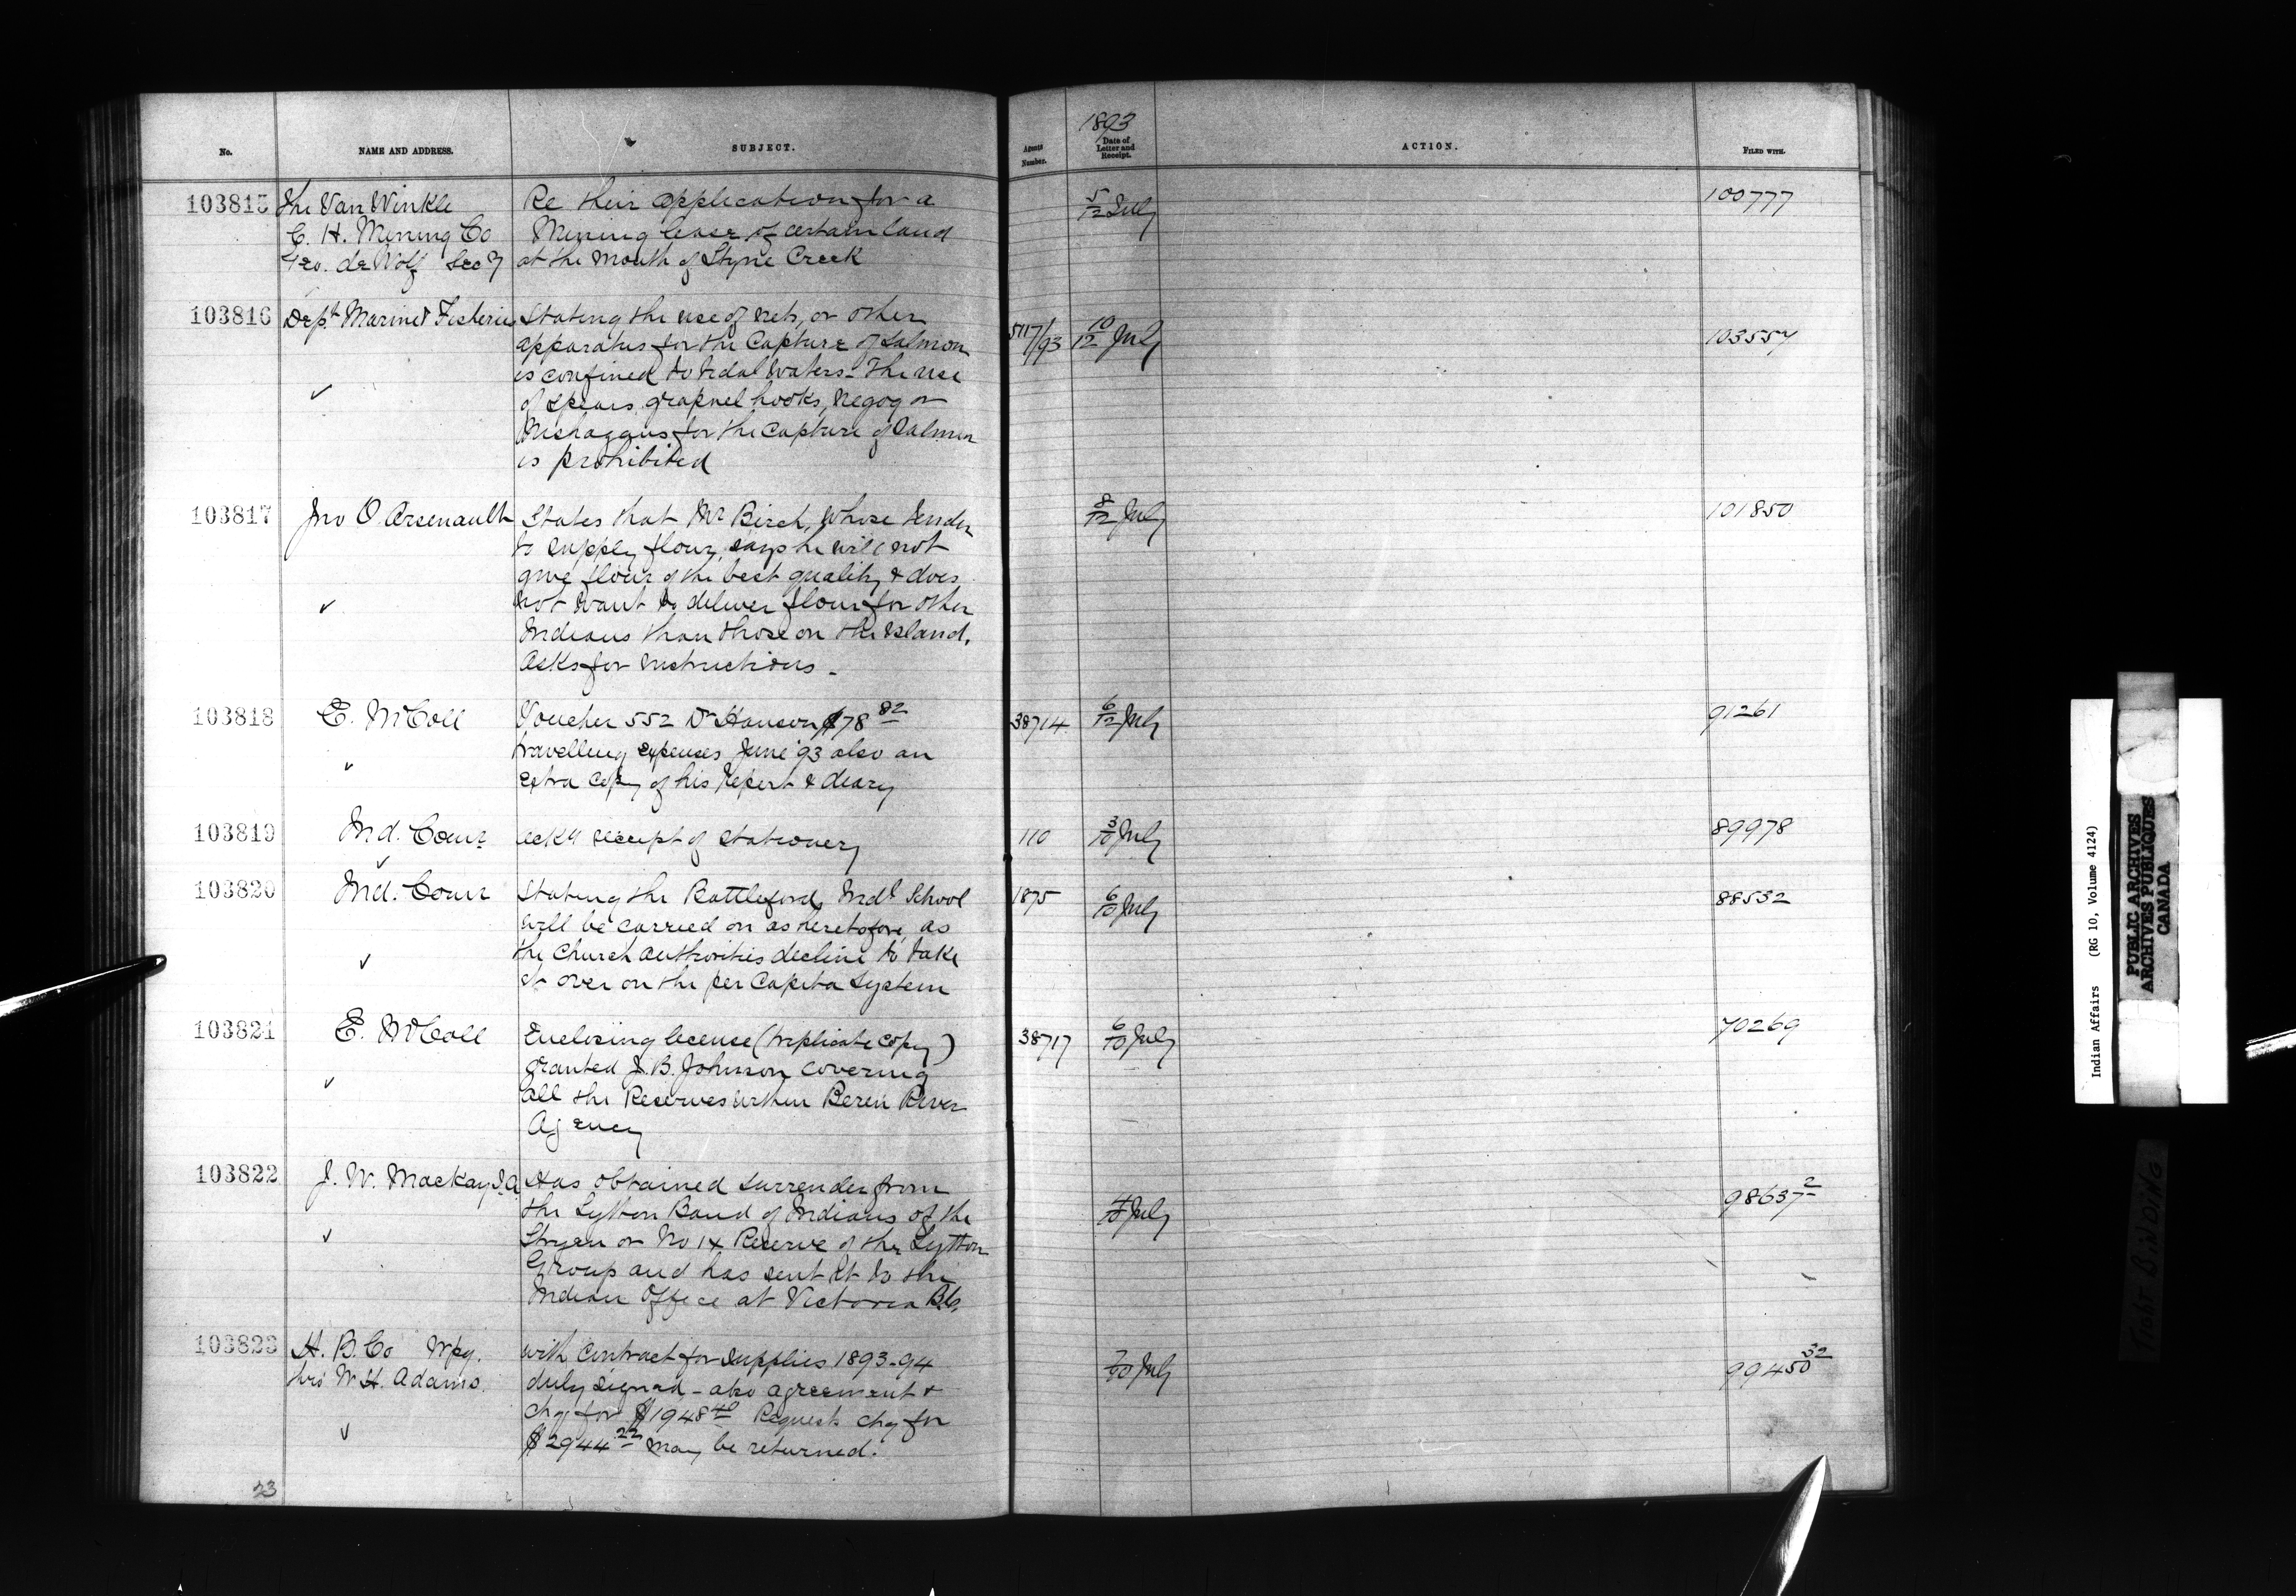 No.
NAME AND ADDRESS.
SUBJECT.
Agents Number.
1893
Date of Letter and Receipt.
ACTION.
FILED WITH.
103815
The Van Winkle
C. H. Mining Co
Geo. de Wolf Secy
Re their application for a
Mining lease of certain land
at the mouth of Stryne Creek
5/12 July
100777
103816
Dept Marine & Fisheries
Stating the use of nets, or other
apparatus for the Capture of Salmon
is confined to tidal waters - The use
of spears, grapnel hooks, negog or
nishagans for the Capture of Salmon
is prohibited
5117/93
10/12 July
103557
103817
Jno O. Arsenault
States that Mr Birch, whose tender
to supply flour, says he will not
give flour of the best quality & does
not want to deliver flour for other
Indians than those on the island.
Asks for instructions.
8/12 July
101850
103818
E. McColl
Voucher 552 Dr Hanson $78 82
travelling expenses June '93 also an
extra copy of his report & diary
38714
6/12 July
91261
103819
Ind. Comr
ackg receipt of stationery
110
3/10 July
89978
103820
Ind. Comr
Stating the Battleford Indl School
will be carried on as heretofore, as
the Church authorities decline to take
it over on the per Capita System
1875
6/10 July
88532
103821
E. McColl
Enclosing license (triplicate copy)
granted J. B. Johnson covering
all the Reserves within Beren River
Agency
38717
6/10 July
70269
103822
J. W. Mackay I.A
Has obtained surrender from
the Lytton Band of Indians of the
Stryen or No 14 Reserve of the Lytton
Group and has sent it to the
Indian Office at Victoria B.C.
4/10 July
98637 2
103823
H. B. Co Wpg.
thro W. H. Adams.
with contract for supplies 1893-94
duly signed - also agreement &
chq for $1948 40 Requests chq for
$2944 22 may be returned.
7/10 July
99450 32
23
Indian Affairs (RG 10, Volume 4124)
PUBLIC ARCHIVES
ARCHIVES PUBLIQUES
CANADA
TIGHT BINDING